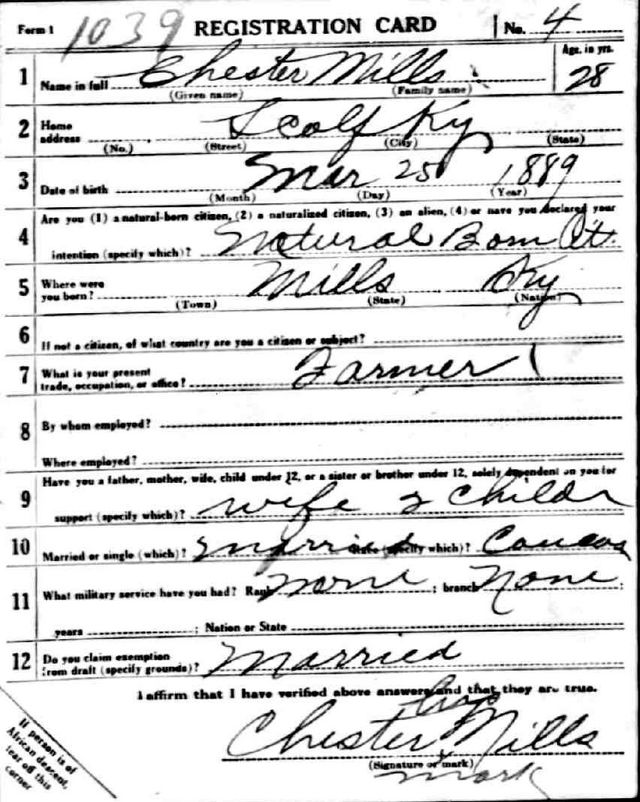 Form 1 1039 REGISTRATION CARD No. 4
1 Name in full Chester Mills Age, in yrs. 28
(Given name) (Family name)
2 Home address Scalf Ky
(No.) (Street) (City) (State)
3 Date of birth Mar 25 1889
(Month) (Day) (Year)
4 Are you (1) a natural-born citizen, (2) a naturalized citizen, (3) an alien, (4) or have you declared your
intention (specify which)? Natural Born Cit.
5 Where were you born? Mills Ky
(Town) (State) (Nation)
6 If not a citizen, of what country are you a citizen or subject?
7 What is your present trade, occupation, or office? Farmer
8 By whom employed?
Where employed?
9 Have you a father, mother, wife, child under 12, or a sister or brother under 12, solely dependent on you for
support (specify which)? wife 2 Childr
10 Married or single (which)? Married Race (specify which)? Caucas
11 What military service have you had? Rank None ; branch None ;
years ; Nation or State
12 Do you claim exemption from draft (specify grounds)? Married
I affirm that I have verified above answers and that they are true.
his
Chester Mills
(Signature or mark)
mark
If person is of
African descent,
tear off this
corner